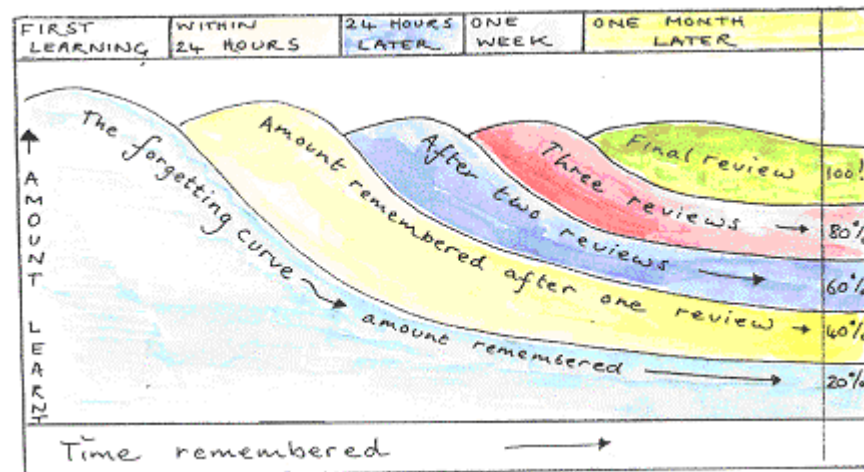 FIRST LEARNING
WITHIN 24 HOURS
24 HOURS LATER
ONE WEEK
ONE MONTH LATER
AMOUNT LEARNT
The forgetting curve
amount remembered
20%
Amount remembered after one review
40%
After two reviews
60%
Three reviews
80%
Final review
100%
Time remembered